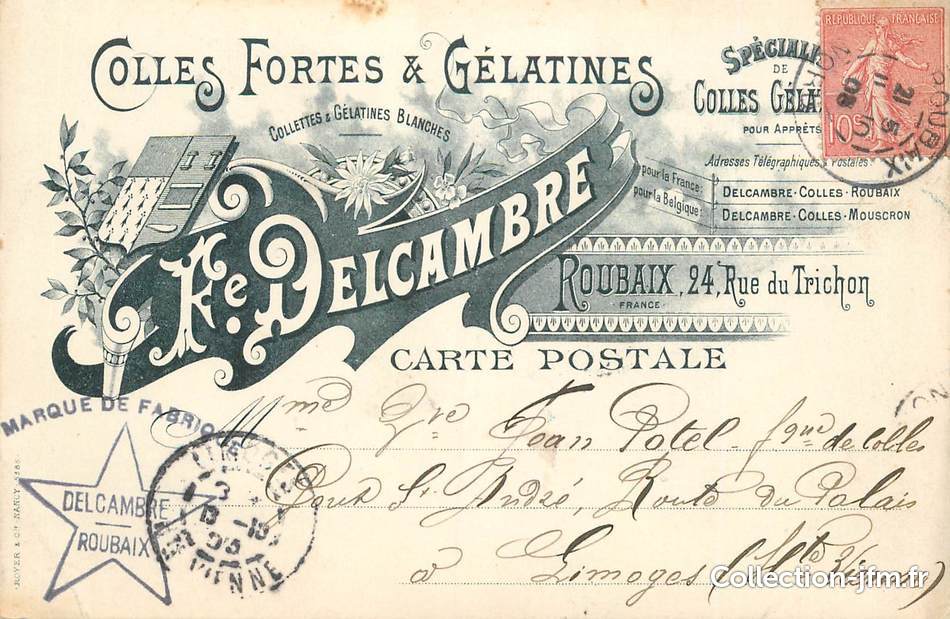 COLLES FORTES & GÉLATINES
COLLETTES & GÉLATINES BLANCHES
Fé. DELCAMBRE
SPÉCIALI
DE
COLLES GÉLAT
POUR APPRÊTS
Adresses Télégraphiques & Postales:
pour la France: DELCAMBRE-COLLES-ROUBAIX
pour la Belgique: DELCAMBRE-COLLES-MOUSCRON
ROUBAIX, 24, Rue du Trichon
- FRANCE -
CARTE POSTALE
REPUBLIQUE FRANÇAISE
10c
ROUBAIX
NORD
21 -5
08
Mme Vve Jean Patel fque de colles
Pont St André, Route du Palais
à Limoges (Hte Vienne)
MARQUE DE FABRIQUE
DELCAMBRE
ROUBAIX
LIMOGES
Hte VIENNE
ROYER & Cie NANCY
Collection-jfm.fr